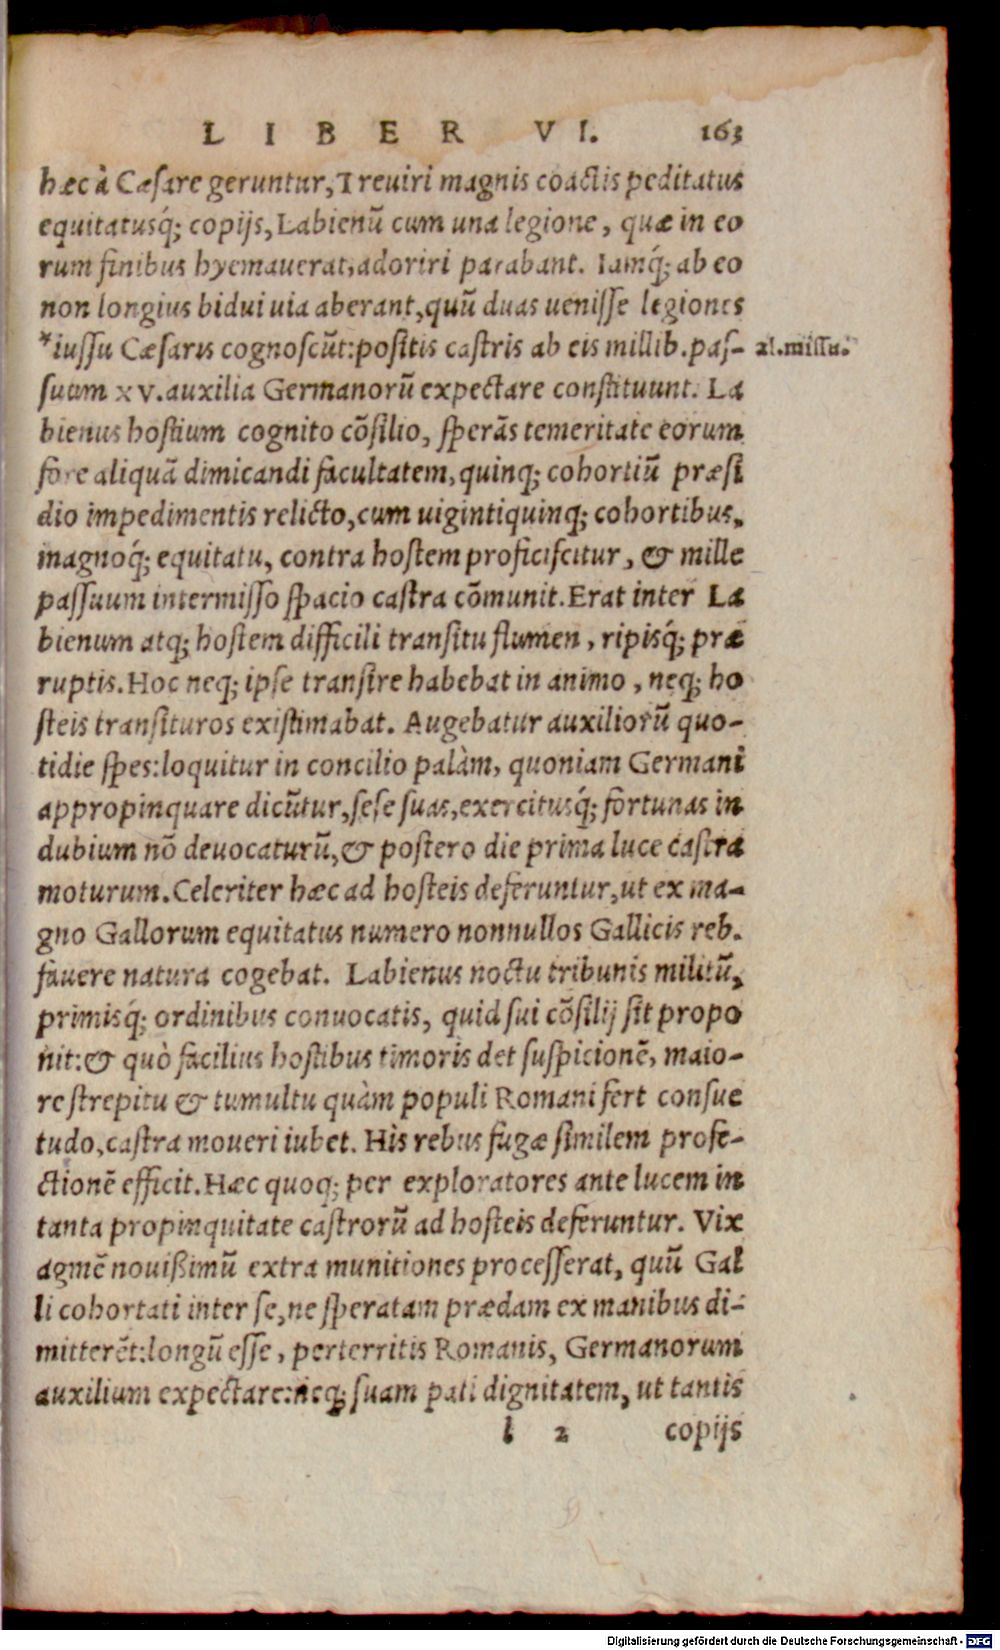 LIBER VI. 163
hæc à Cæsare geruntur, Treuiri magnis coactis peditatus
equitatusq́; copijs, Labienū cum una legione, quæ in eo
rum finibus hyemauerat, adoriri parabant. Iamq́; ab eo
non longius bidui uia aberant, quū duas uenisse legiones
*iussu Cæsaris cognoscūt: positis castris ab eis millib. pas- al. missu.
suum xv. auxilia Germanorū expectare constituunt. La
bienus hostium cognito cōsilio, sperās temeritate eorum
fore aliquā dimicandi facultatem, quinq; cohortiū præsi
dio impedimentis relicto, cum uigintiquinq; cohortibus,
magnoq́; equitatu, contra hostem proficiscitur, & mille
passuum intermisso spacio castra cōmunit. Erat inter La
bienum atq; hostem difficili transitu flumen, ripisq́; præ
ruptis. Hoc neq; ipse transire habebat in animo, neq; ho
steis transituros existimabat. Augebatur auxiliorū quo-
tidie spes: loquitur in concilio palàm, quoniam Germani
appropinquare dicūtur, sese suas, exercitusq́; fortunas in
dubium nō deuocaturū, & postero die prima luce castra
moturum. Celeriter hæc ad hosteis deferuntur, ut ex ma-
gno Gallorum equitatus numero nonnullos Gallicis reb.
fauere natura cogebat. Labienus noctu tribunis militū,
primisq́; ordinibus conuocatis, quid sui cōsilij sit propo
nit: & quò facilius hostibus timoris det suspicionē, maio-
re strepitu & tumultu quàm populi Romani fert consue
tudo, castra moueri iubet. His rebus fugæ similem profe-
ctionē efficit. Hæc quoq; per exploratores ante lucem in
tanta propinquitate castrorū ad hosteis deferuntur. Vix
agmē nouißimū extra munitiones processerat, quū Gal
li cohortati inter se, ne speratam prædam ex manibus di-
mitterēt: longū esse, perterritis Romanis, Germanorum
auxilium expectare: neq; suam pati dignitatem, ut tantis
l 2 copijs
Digitalisierung gefördert durch die Deutsche Forschungsgemeinschaft - DFG